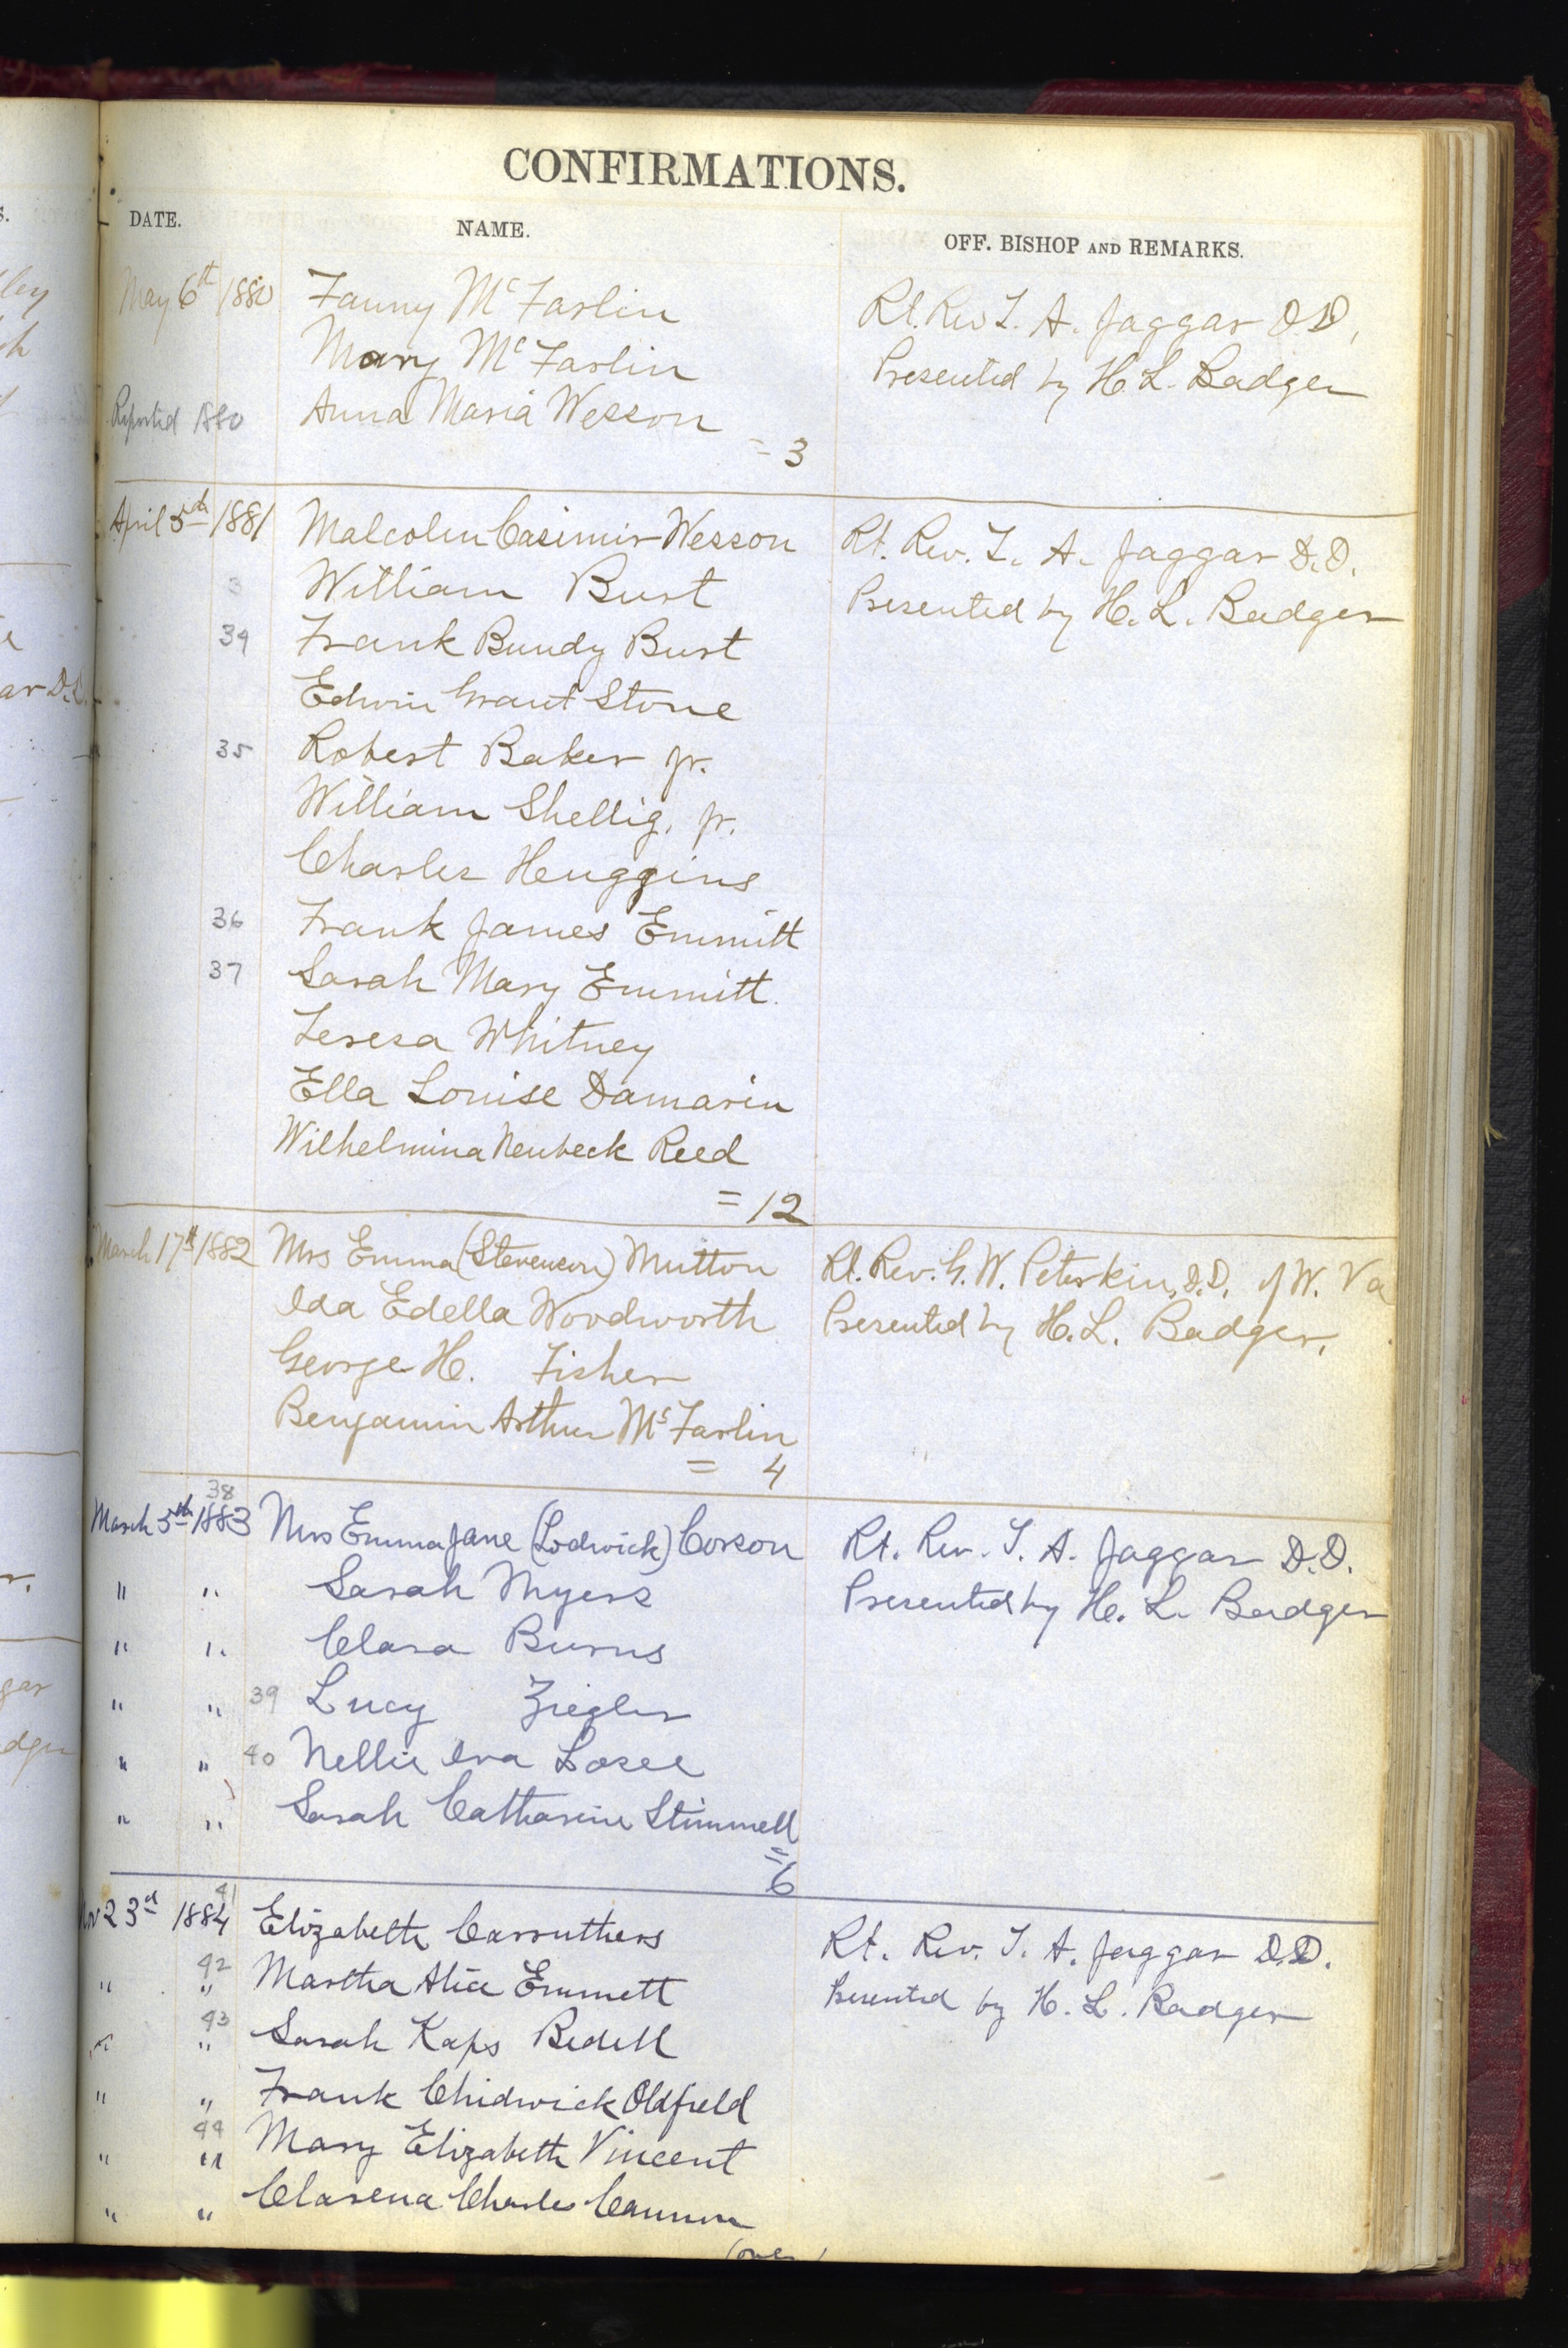 CONFIRMATIONS.
DATE. NAME. OFF. BISHOP AND REMARKS.
May 6th 1880 Fanny McFarlin Rt. Rev T. A. Jaggar D.D,
Mary McFarlin Presented by H. L. Badger
Reported 1880 Anna Maria Wesson
= 3
April 5th 1881 Malcolm Casimir Wesson Rt. Rev. T. A. Jaggar D.D.
3 William Burt Presented by H. L. Badger
34 Frank Bundy Burt
Edwin Grant Stone
35 Robert Baker Jr.
William Shellig, Jr.
Charles Henggins
36 Frank James Emmitt
37 Sarah Mary Emmitt.
Teresa Whitney
Ella Louise Damarin
Wilhelmina Neubeck Reed
= 12
March 17th 1882 Mrs Emma (Stevenson) Mutton Rt. Rev. G. W. Peterkin, D.D. of W. Va
Ida Edella Woodworth Presented by H. L. Badger,
George H. Fisher
Benjamin Arthur McFarlin
= 4
38
March 5th 1883 Mrs Emma Jane (Lodwick) Corson Rt. Rev. T. A. Jaggar D.D.
" " Sarah Myers Presented by H. L. Badger
" " Clara Burns
" " 39 Lucy Ziegler
" " 40 Nellie Iva Losee
" " Sarah Catharine Stimmell
= 6
41
Nov 23d 1884 Elizabeth Carruthers Rt. Rev. T. A. Jaggar D.D.
" 42 " Martha Alice Emmett Presented by H. L. Badger
" 43 " Sarah Kaps Bedell
" " Frank Chidwick Oldfield
" 44 " Mary Elizabeth Vincent
" " Clarena Charles Cannon
(over)